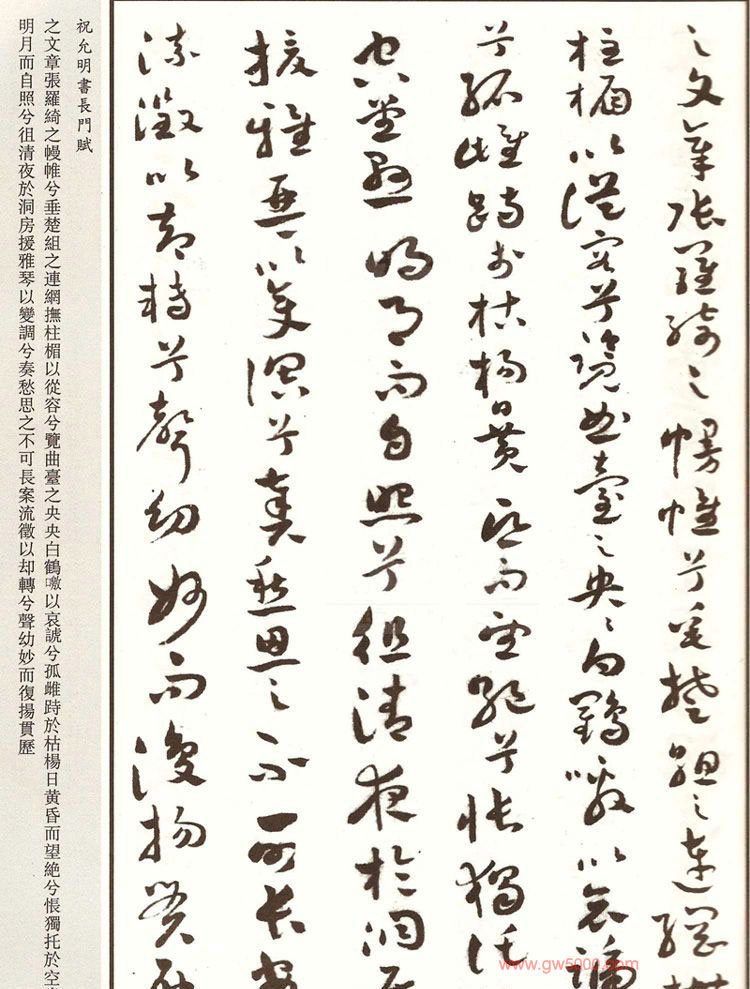 之文章張羅綺之幔帷兮垂楚組之連網撫
柱楣以從容兮覽曲臺之央央白鶴噭以哀謕
兮孤雌跱於枯楊日黄昏而望絶兮悵獨托
空堂懸明月而自照兮徂清夜於洞房
援雅琴以變調兮奏愁思之不可長案
流徵以却轉兮聲幼妙而復揚貫歷
祝允明書長門賦
之文章張羅綺之幔帷兮垂楚組之連網撫柱楣以從容兮覽曲臺之央央白鶴噭以哀謕兮孤雌跱於枯楊日黄昏而望絶兮悵獨托於空
明月而自照兮徂清夜於洞房援雅琴以變調兮奏愁思之不可長案流徵以却轉兮聲幼妙而復揚貫歷
www.gw5000.com